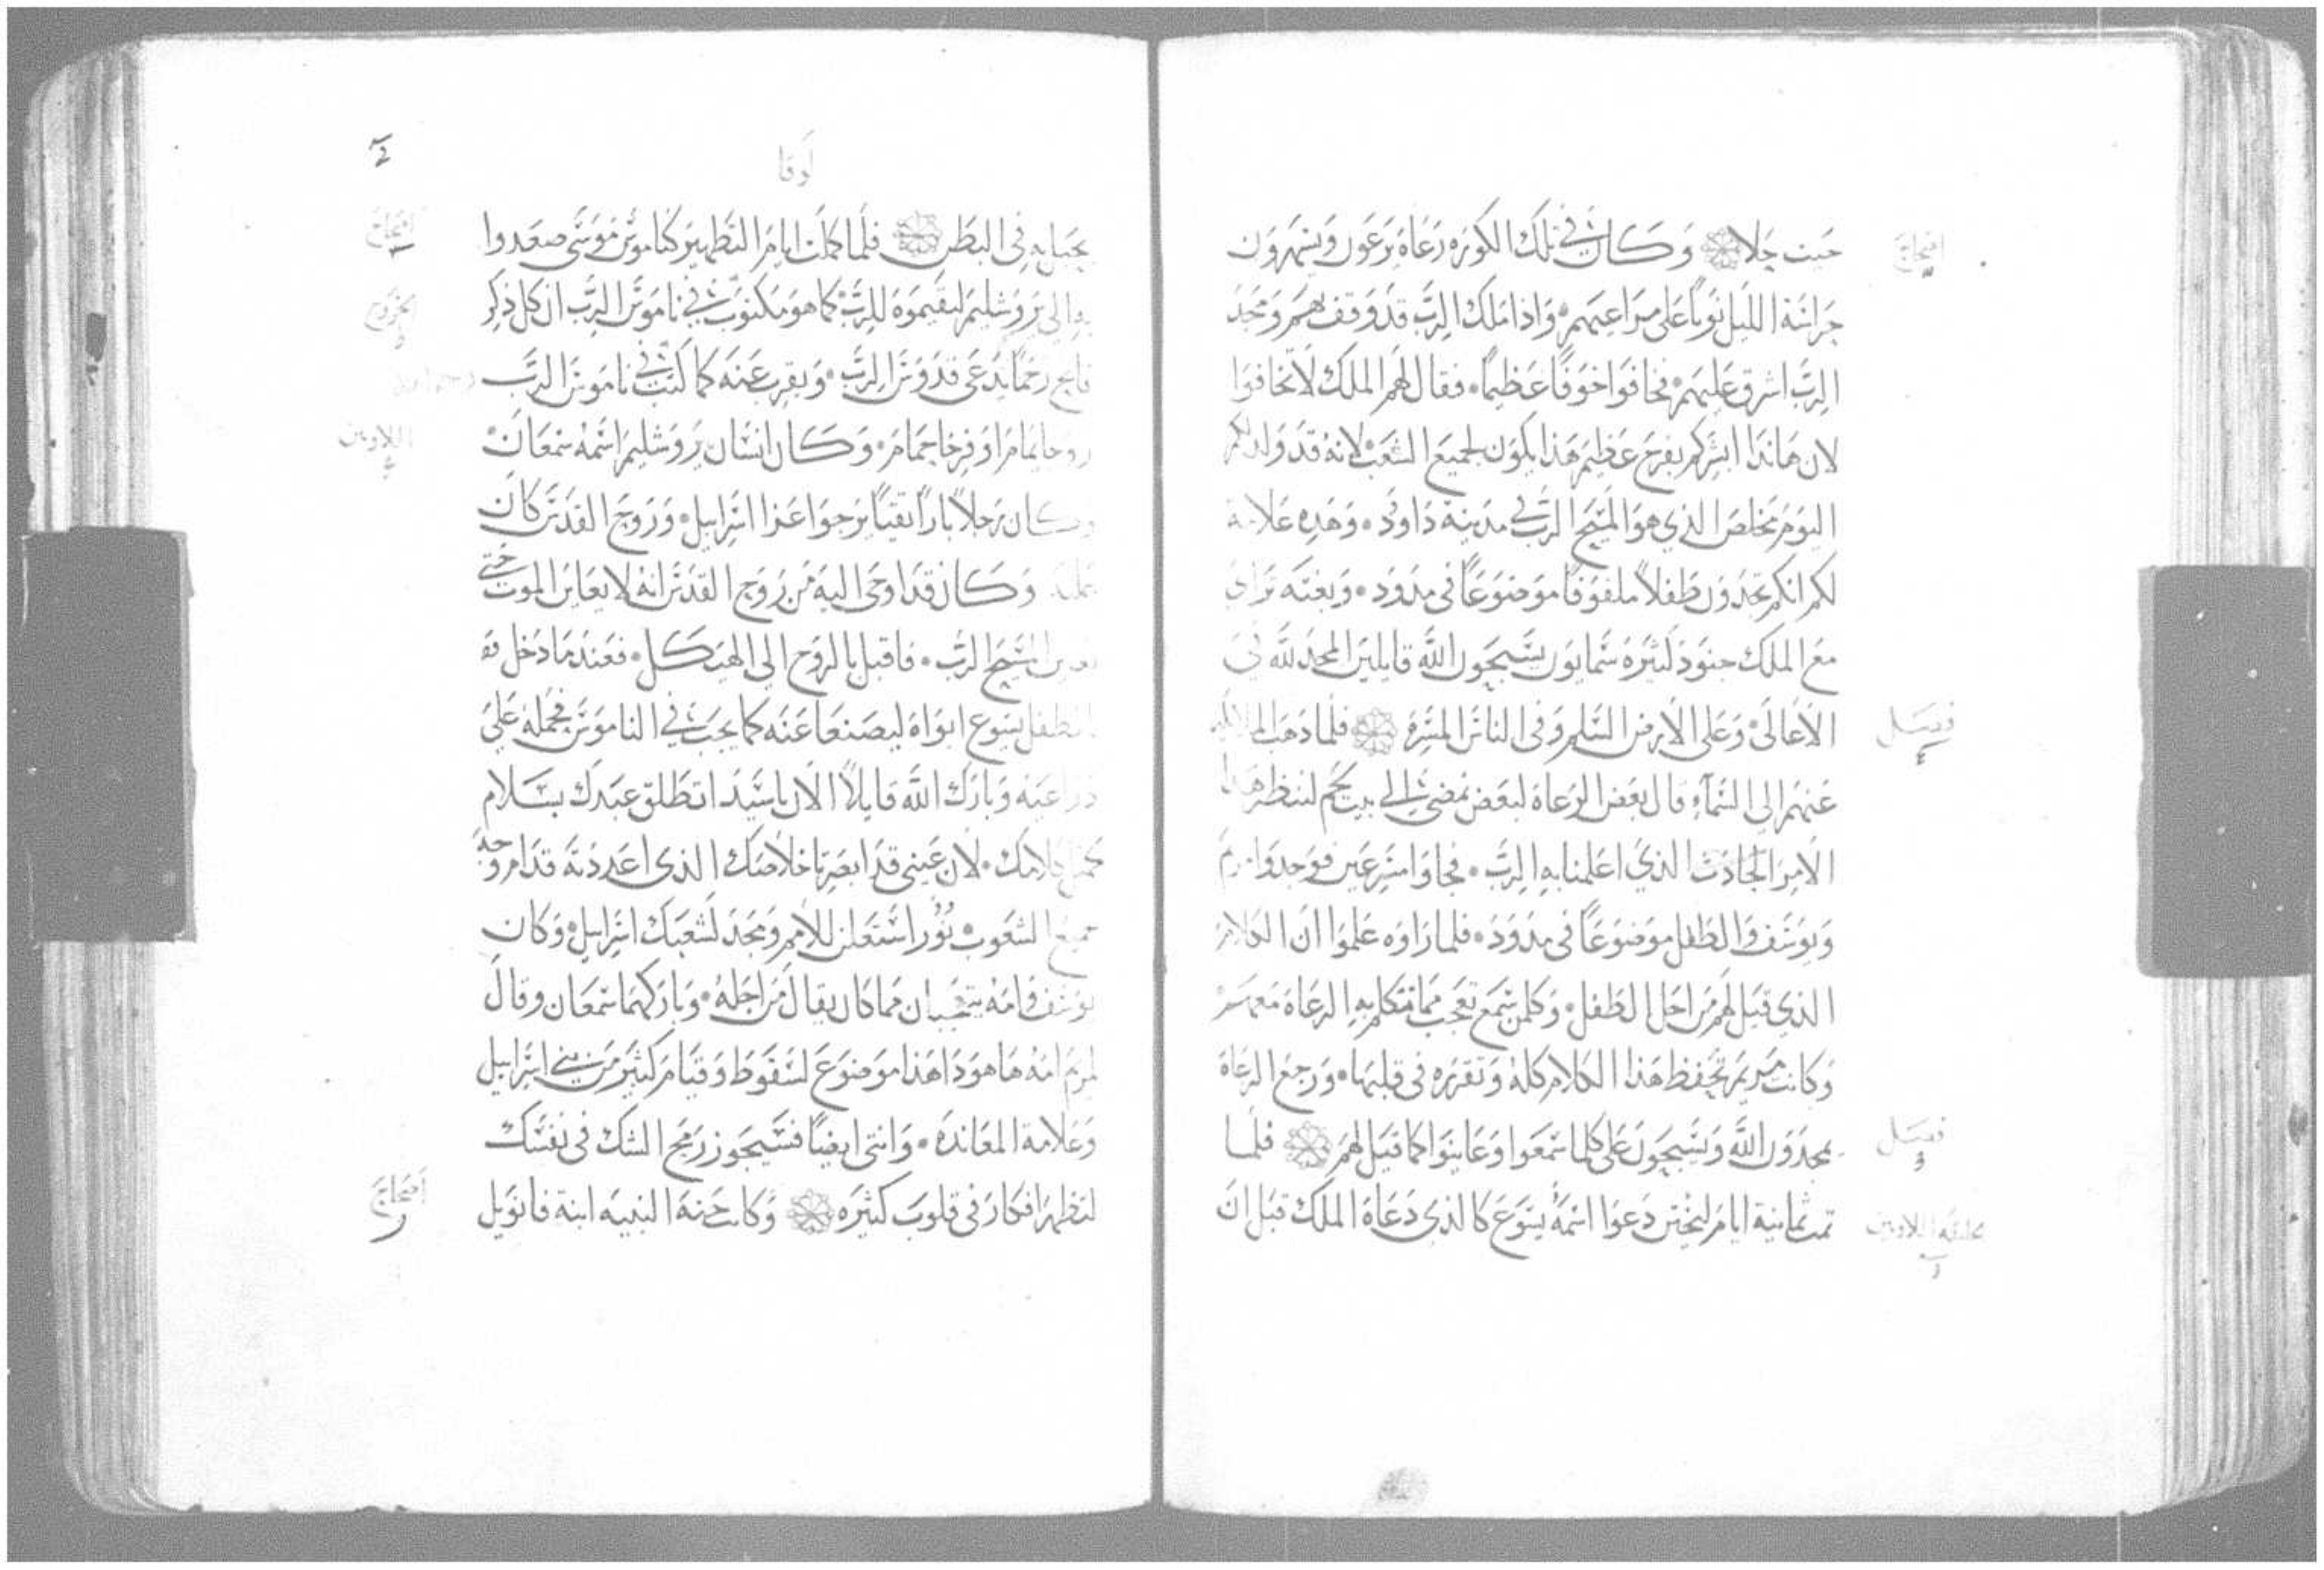 حيث حلا وكان في تلك الكوره رعاة يرعون ويسهرون
حراسة الليل نوبا على مراعيهم واذا ملك الرب قد وقف بهم ومجد
الرب اشرق عليهم فخافوا خوفا عظيما فقال لهم الملك لا تخافوا
لان هانذا ابشركم بفرح عظيم هذا يكون لجميع الشعب لانه قد ولد لكم
اليوم مخلص الذي هو المسيح الرب في مدينة داوود وهذه علامة
لكم انكم تجدون طفلا ملفوفا موضوعا في مدود وبغته تراى
مع الملك جنود كثيره سمايون يسبحون الله قايلين المجد لله في
الاعالى وعلى الارض السلم وفى الناس المسره فلما ذهب الملايكه
فصل
عنهم الى السماء قال بعض الرعاة لبعض نمضي الى بيت لحم لننظر هذا
الامر الحادث الذي اعلمنا به الرب فجاوا مسرعين فوجدوا مريم
ويوسف والطفل موضوعا في مدود فلما راوه علموا ان الكلام
الذي قيل لهم من اجل الطفل وكلمن سمع تعجب مما تكلم به الرعاة معهم
وكانت مريم تحفظ هذا الكلام كله وتقرره في قلبها ورجع الرعاة
يمجدون الله ويسبحون على كلما سمعوا وعاينوا كما قيل لهم فلما
فصل
تمت ثمانية ايام ليختن دعوا اسمه يسوع كالذي دعاه الملك قبل ان
لوقا
يحبل به في البطن فلما كملت ايام التطهير كناموس موسى صعدوا
به الى يروشليم ليقيموه للرب كما هو مكتوب في ناموس الرب ان كل ذكر
فاتح رحما يدعى قدوس الرب ويقرب عنه كما كتب في ناموس الرب
زوجا يمام او فرخا حمام وكان انسان بيروشليم اسمه سمعان
وكان رجلا بارا تقيا يرجوا عزا اسرايل وروح القدس كان
عليه وكان قد اوحى اليه من روح القدس انه لا يعاين الموت حتى
يعاين المسيح الرب فاقبل بالروح الى الهيكل فعندما دخل
بالطفل يسوع ابواه ليصنعا عنه كما يجب في الناموس فحمله على
ذراعيه وبارك الله قايلا الان يا سيد اتطلق عبدك بسلام
كمثل كلامك لان عيني قد ابصرتا خلاصك الذي اعددته قدام وجه
جميع الشعوب نور استعلن للامم ومجد لشعبك اسرايل وكان
يوسف وامه يتعجبان مما كان يقال من اجله وباركهما سمعان وقال
لمريم امه ها هوذا هذا موضوع لسقوط وقيام كثير من بني اسرايل
وعلامة المعانده وانتي ايضا فسيجوز رمح الشك في نفسك
لتظهر افكار في قلوب كثيره وكانت حنه النبيه ابنة فانويل